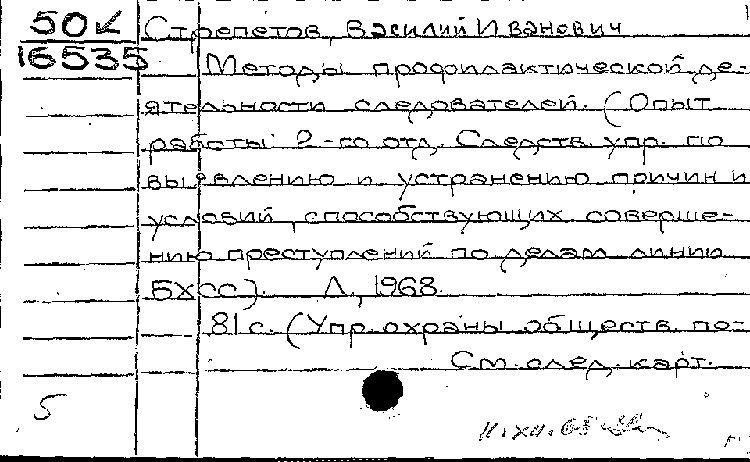 50К
16535
Стрепетов, Василий Иванович
Методы профилактической де-
ятельности следователей. (Опыт
работы 2-го отд. Следств. упр. по
выявлению и устранению причин и
условий, способствующих соверше-
нию преступлений по делам линии
БХСС). Л., 1968.
81 с. (Упр. охраны обществ. по-
См. след. карт.
5